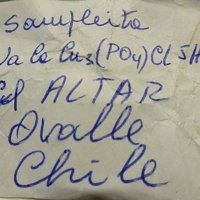 Sampleita
Na Ca Cu5(PO4)Cl 5H
Cº ALTAR
Ovalle
Chile